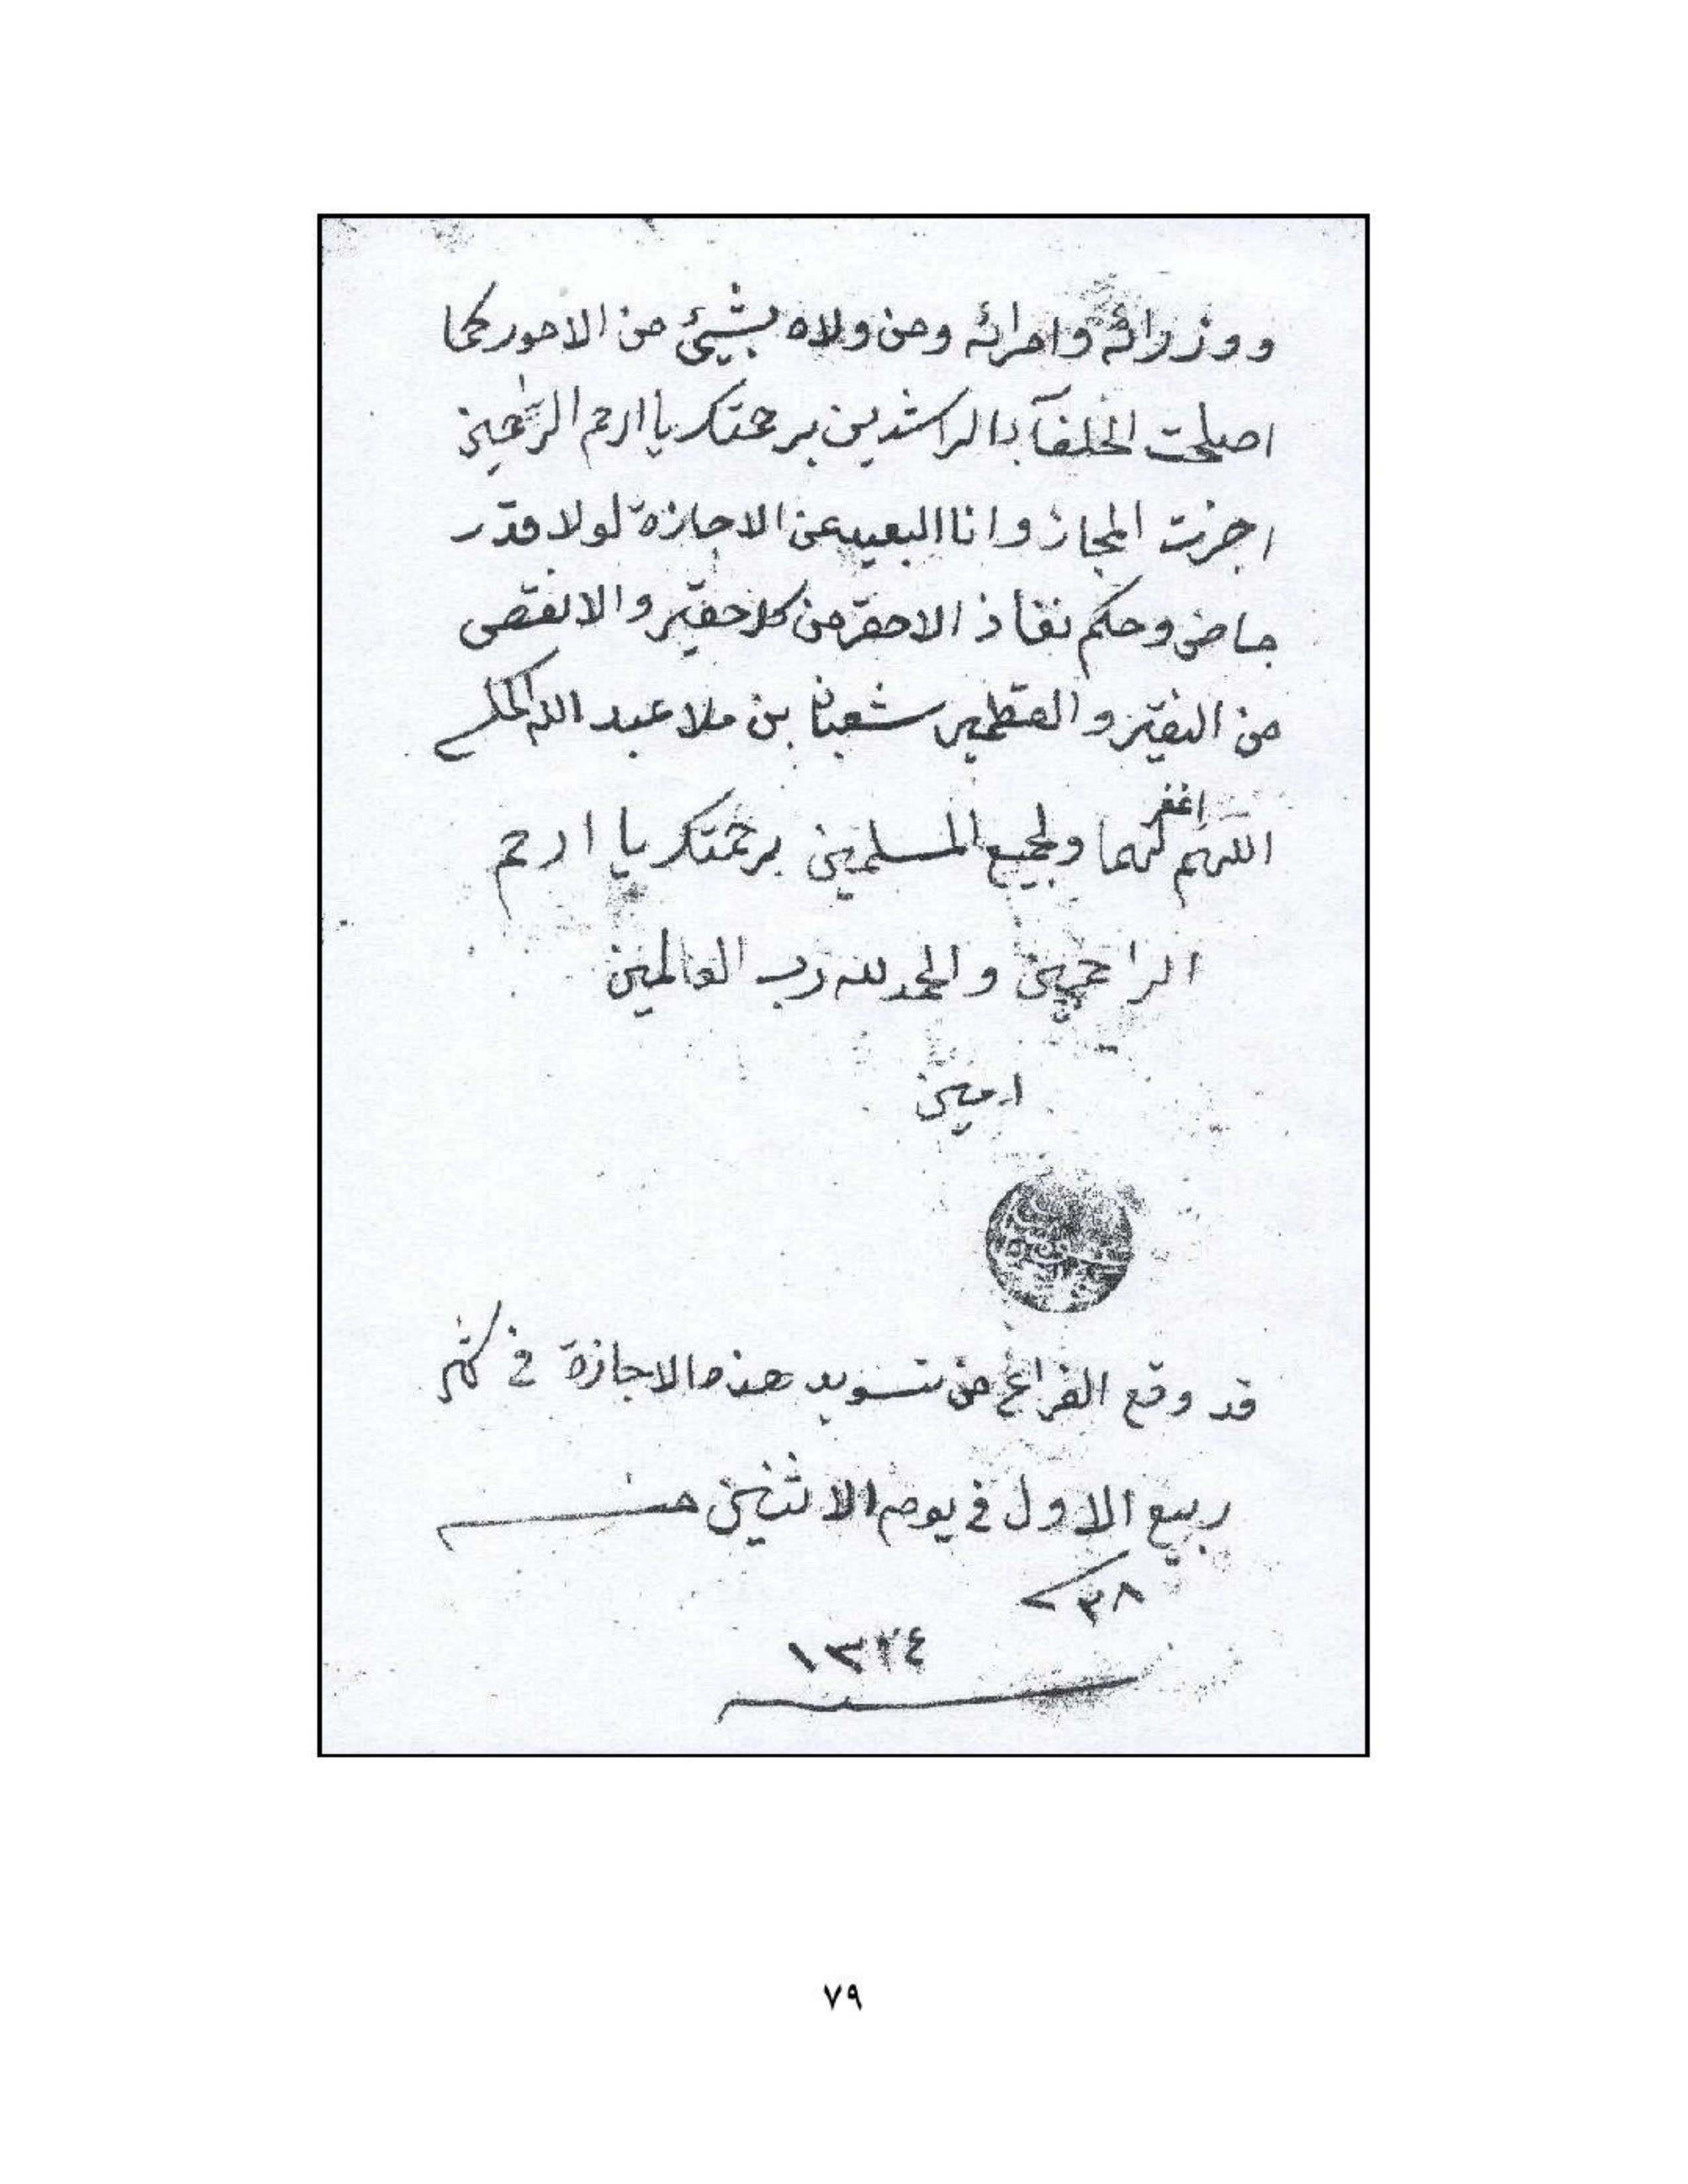 ووزرائه وامرائه ومن ولاه بشيئ من الامور كما
اصلحت الخلفآء الراشدين برحمتك يا ارحم الرحمين
اجزت المجاز وانا البعيد عن الاجازة لولا قدر
ماض وحكم نفاذ الاحقر من كل حقير والانقص
من النقير والقطمير شعبان بن ملا عبد الله
اللهم اغفر لهما ولجميع المسلمين برحمتك يا ارحم
الراحمين والحمد لله رب العالمين
امين
قد وقع الفراغ من تسويد هذه الاجازة في شهر
ربيع الاول في يوم الاثنين
٧٩